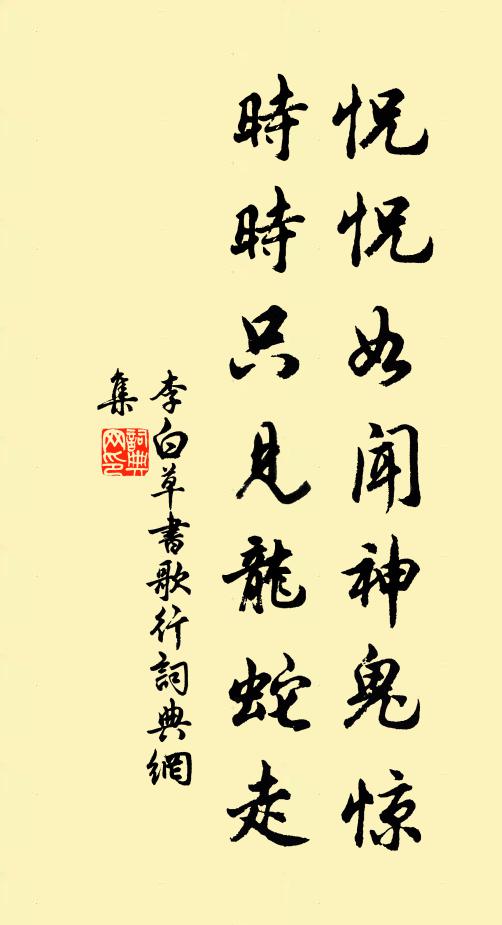 怳怳如闻神鬼惊
時時只見龍蛇走
李白草書歌行詞典網
集
詞典
网印